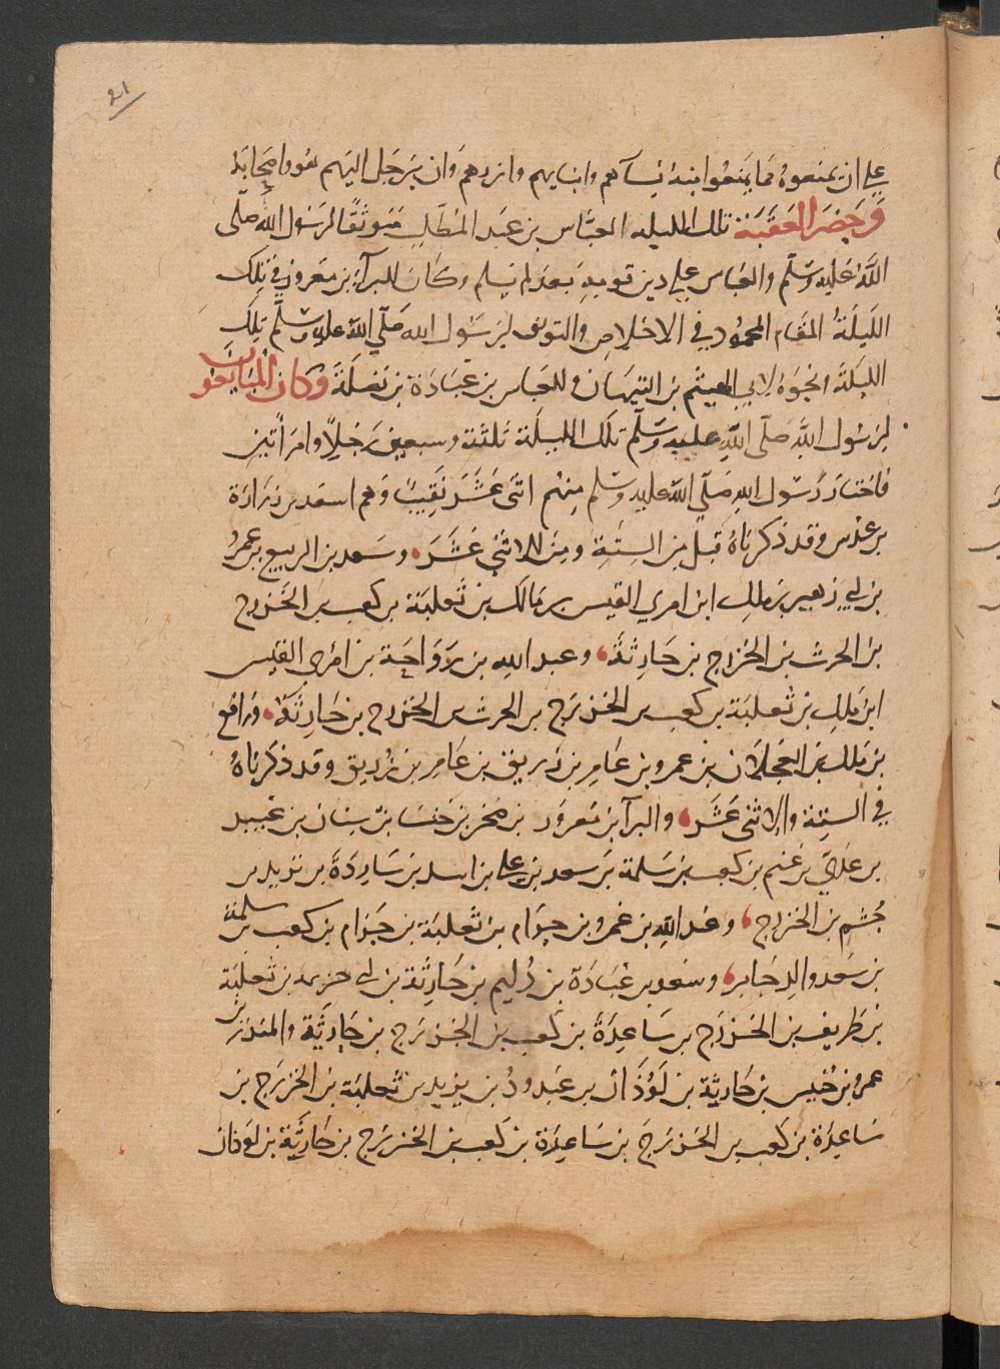 21
على ان يمنعوه مما يمنعوا منه نسآهم وابنايهم وازرهم وان يرحل اليهم هو واصحابه
وحضر العقبة تلك الليله العباس بن عبد المطلب متوثقا لرسول الله صلى
الله عليه وسلم والعباس على دين قومه بعد لم يسلم وكان للبرآء بن معرور في تلك
الليلة المقام المحمود في الاخلاص والتوثق لرسول الله صلى الله عليه وسلم تلك
الليلة ونحوه لابي الهيثم بن التيهان وللعباس بن عبادة بن نضلة وكان المبايعون
لرسول الله صلى الله عليه وسلم تلك الليلة ثلثة وسبعين رجلا وامراتين
فاختار رسول الله صلى الله عليه وسلم منهم اثنى عشر نقيبا وهم اسعد بن زرارة
بن عدس وقد ذكرناه قبل من الستة ومن الاثني عشر وسعد بن الربيع بن عمرو
بن ابي زهير بن ملك ابن امرى القيس بن مالك بن ثعلبة بن كعب بن الخزرج
بن الحرث بن الخزرج بن حارثة وعبد الله بن رواحة بن امرى القيس
ابن ملك بن ثعلبة بن كعب بن الخزرج بن الحرث بن الخزرج بن حارثة ورافع
بن ملك بن العجلان بن عمرو بن عامر بن زريق بن عامر بن زريق وقد ذكرناه
في الستة والاثنى عشر والبرآ بن معرور بن صخر بن خنسا بن سنان بن عبيد
بن عدي بن غنم بن كعب بن سلمة بن سعد بن علي بن اسد بن ساردة بن تزيد بن
جشم بن الخزرج وعبد الله بن عمرو بن حرام بن ثعلبة بن حرام بن كعب بن سلمة
بن سعد والد جابر وسعد بن عبادة بن دليم بن حارثة بن ابي حزيمه بن ثعلبة
بن طريف بن الخزرج بن ساعدة بن كعب بن الخزرج بن حارثة والمنذر بن
عمرو بن خنيس بن حارثة بن لوذان بن عبد ود بن يزيد بن ثعلبة بن الخزرج بن
ساعدة بن كعب بن الخزرج بن ساعدة بن كعب بن الخزرج بن حارثة بن لوذان